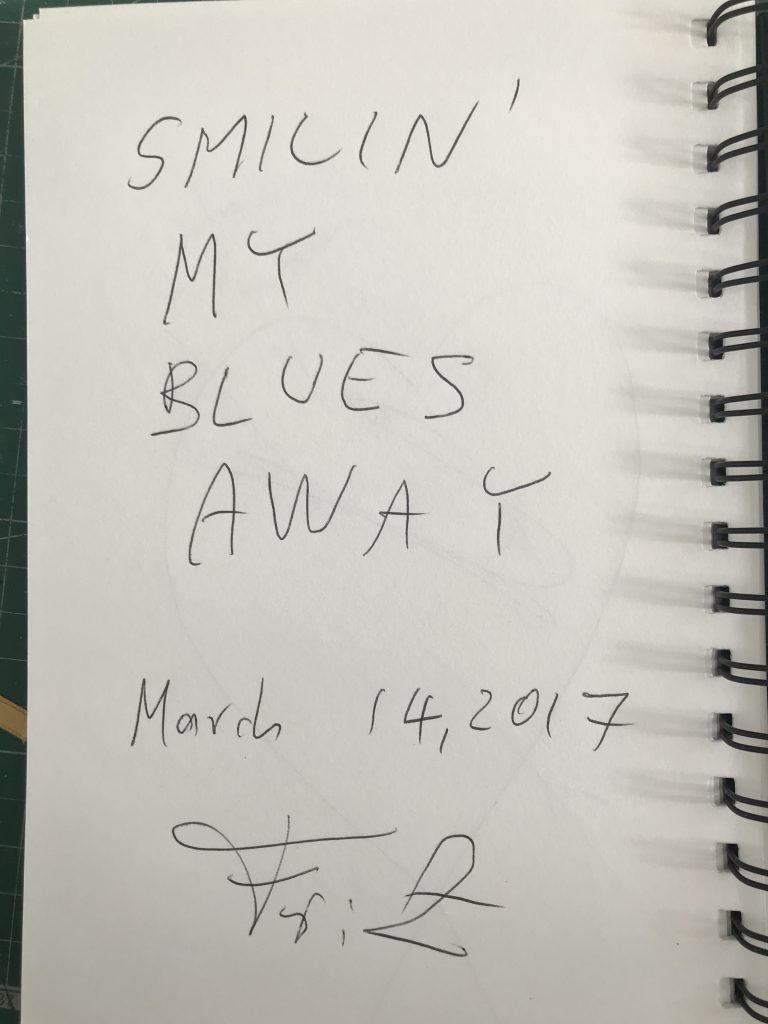 SMILIN'
MY
BLUES
AWAY
March 14, 2017